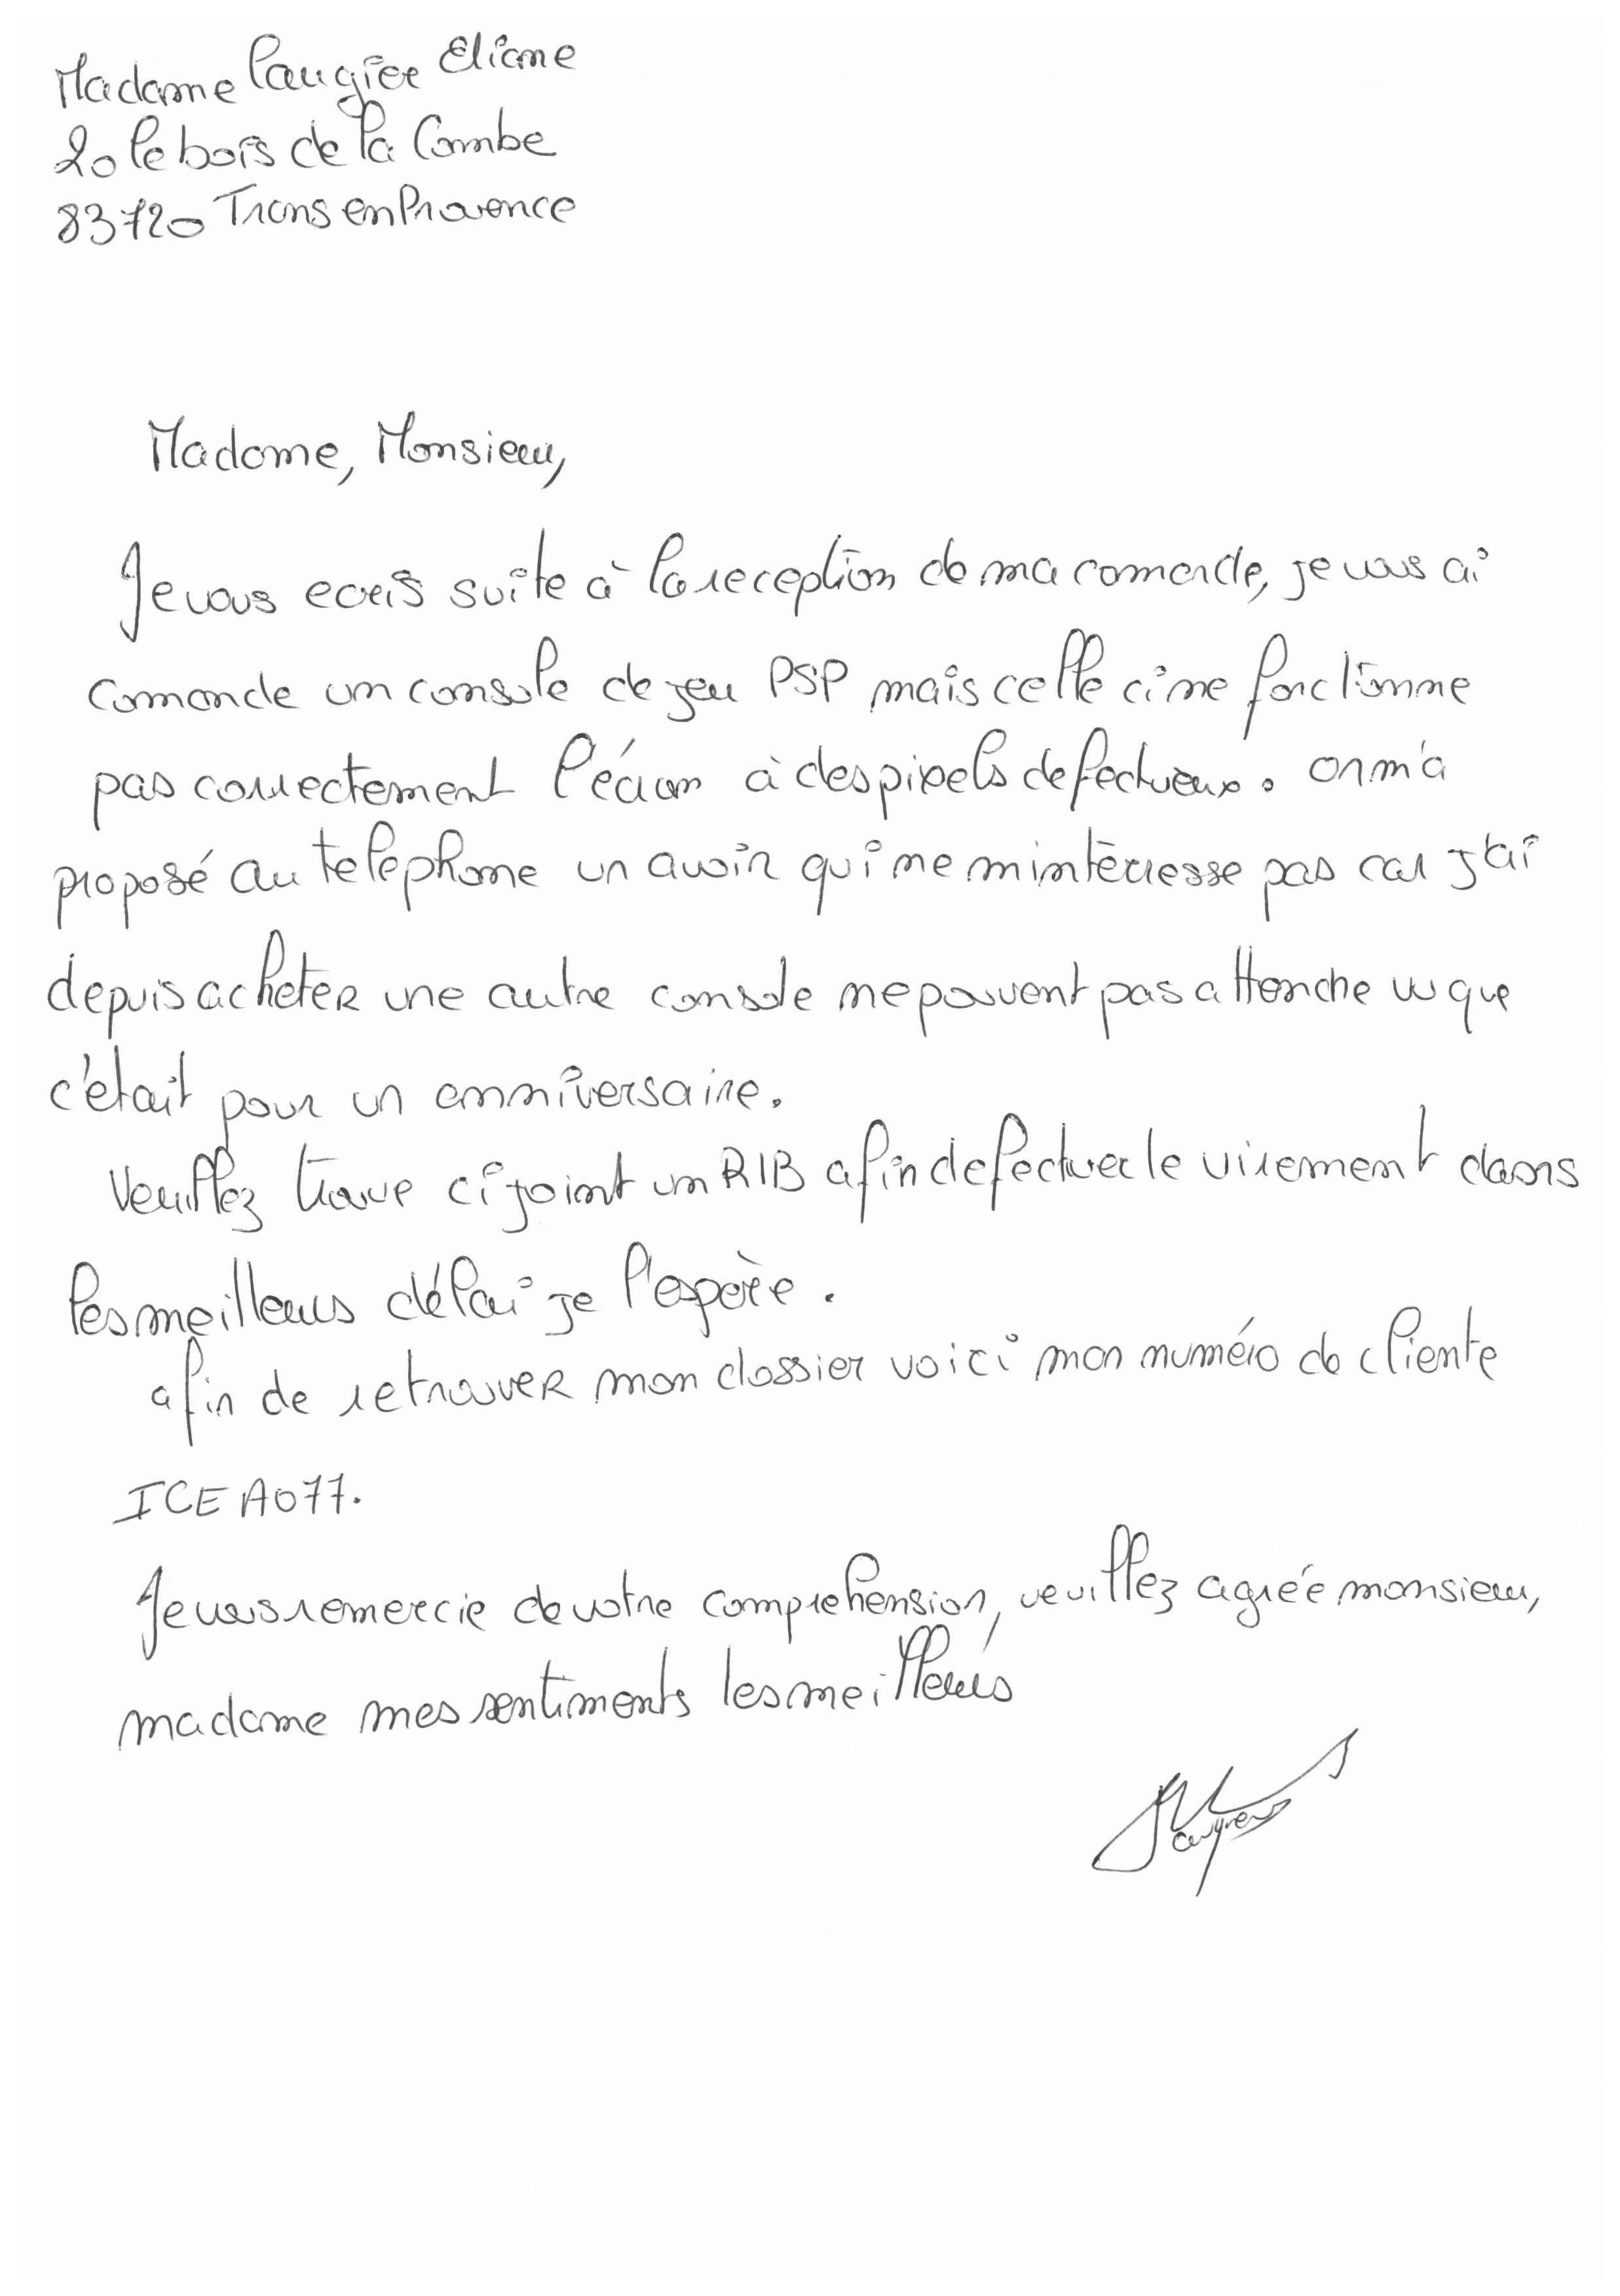 Madame Laugier Eliane
20 le bois de la Combe
83720 Trans en Provence
Madame, Monsieur,
Je vous ecris suite à la reception de ma comande, je vous ai
comande un console de jeu PSP mais celle ci ne fonctionne
pas correctement l'écran à des pixels defectueux. on m'a
proposé au telephone un avoir qui ne m'intèresse pas car j'ai
depuis acheter une autre console ne pouvent pas attendre vu que
c'etait pour un anniversaire.
Veuillez trouve ci joint un RIB afin d'efectuer le virement dans
les meilleurs délai je l'espère.
afin de retrouver mon dossier voici mon numéro de cliente
ICEA077.
Je vous remercie de votre comprehension, veuillez agrée monsieur,
madame mes sentiments les meilleurs